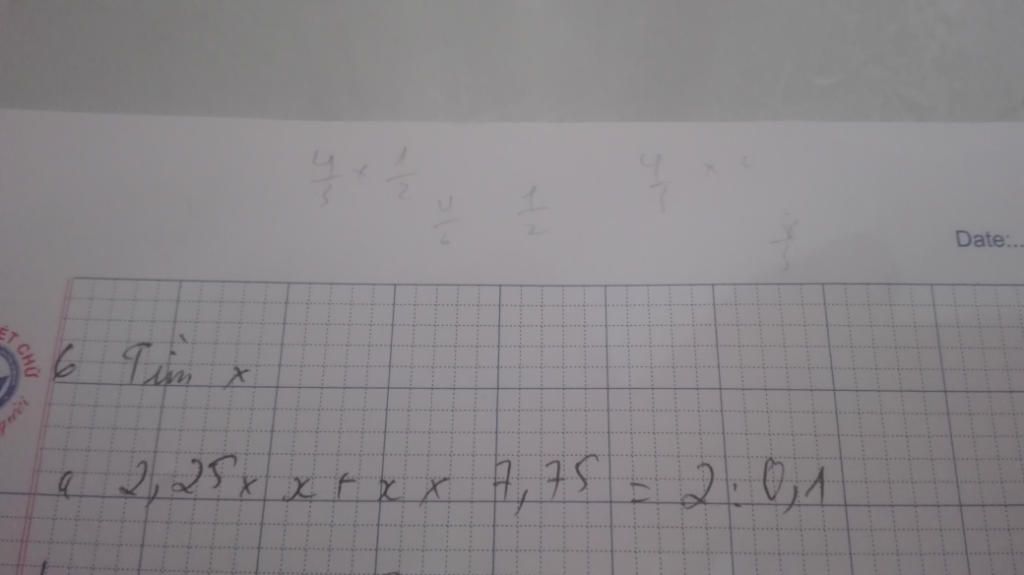 4/3 x 1/2
4/6 1/2 4/3 x
Date:..
ẾT CHỮ
6 Tìm x
a 2,25 x x + x x 7,75 = 2 : 0,1